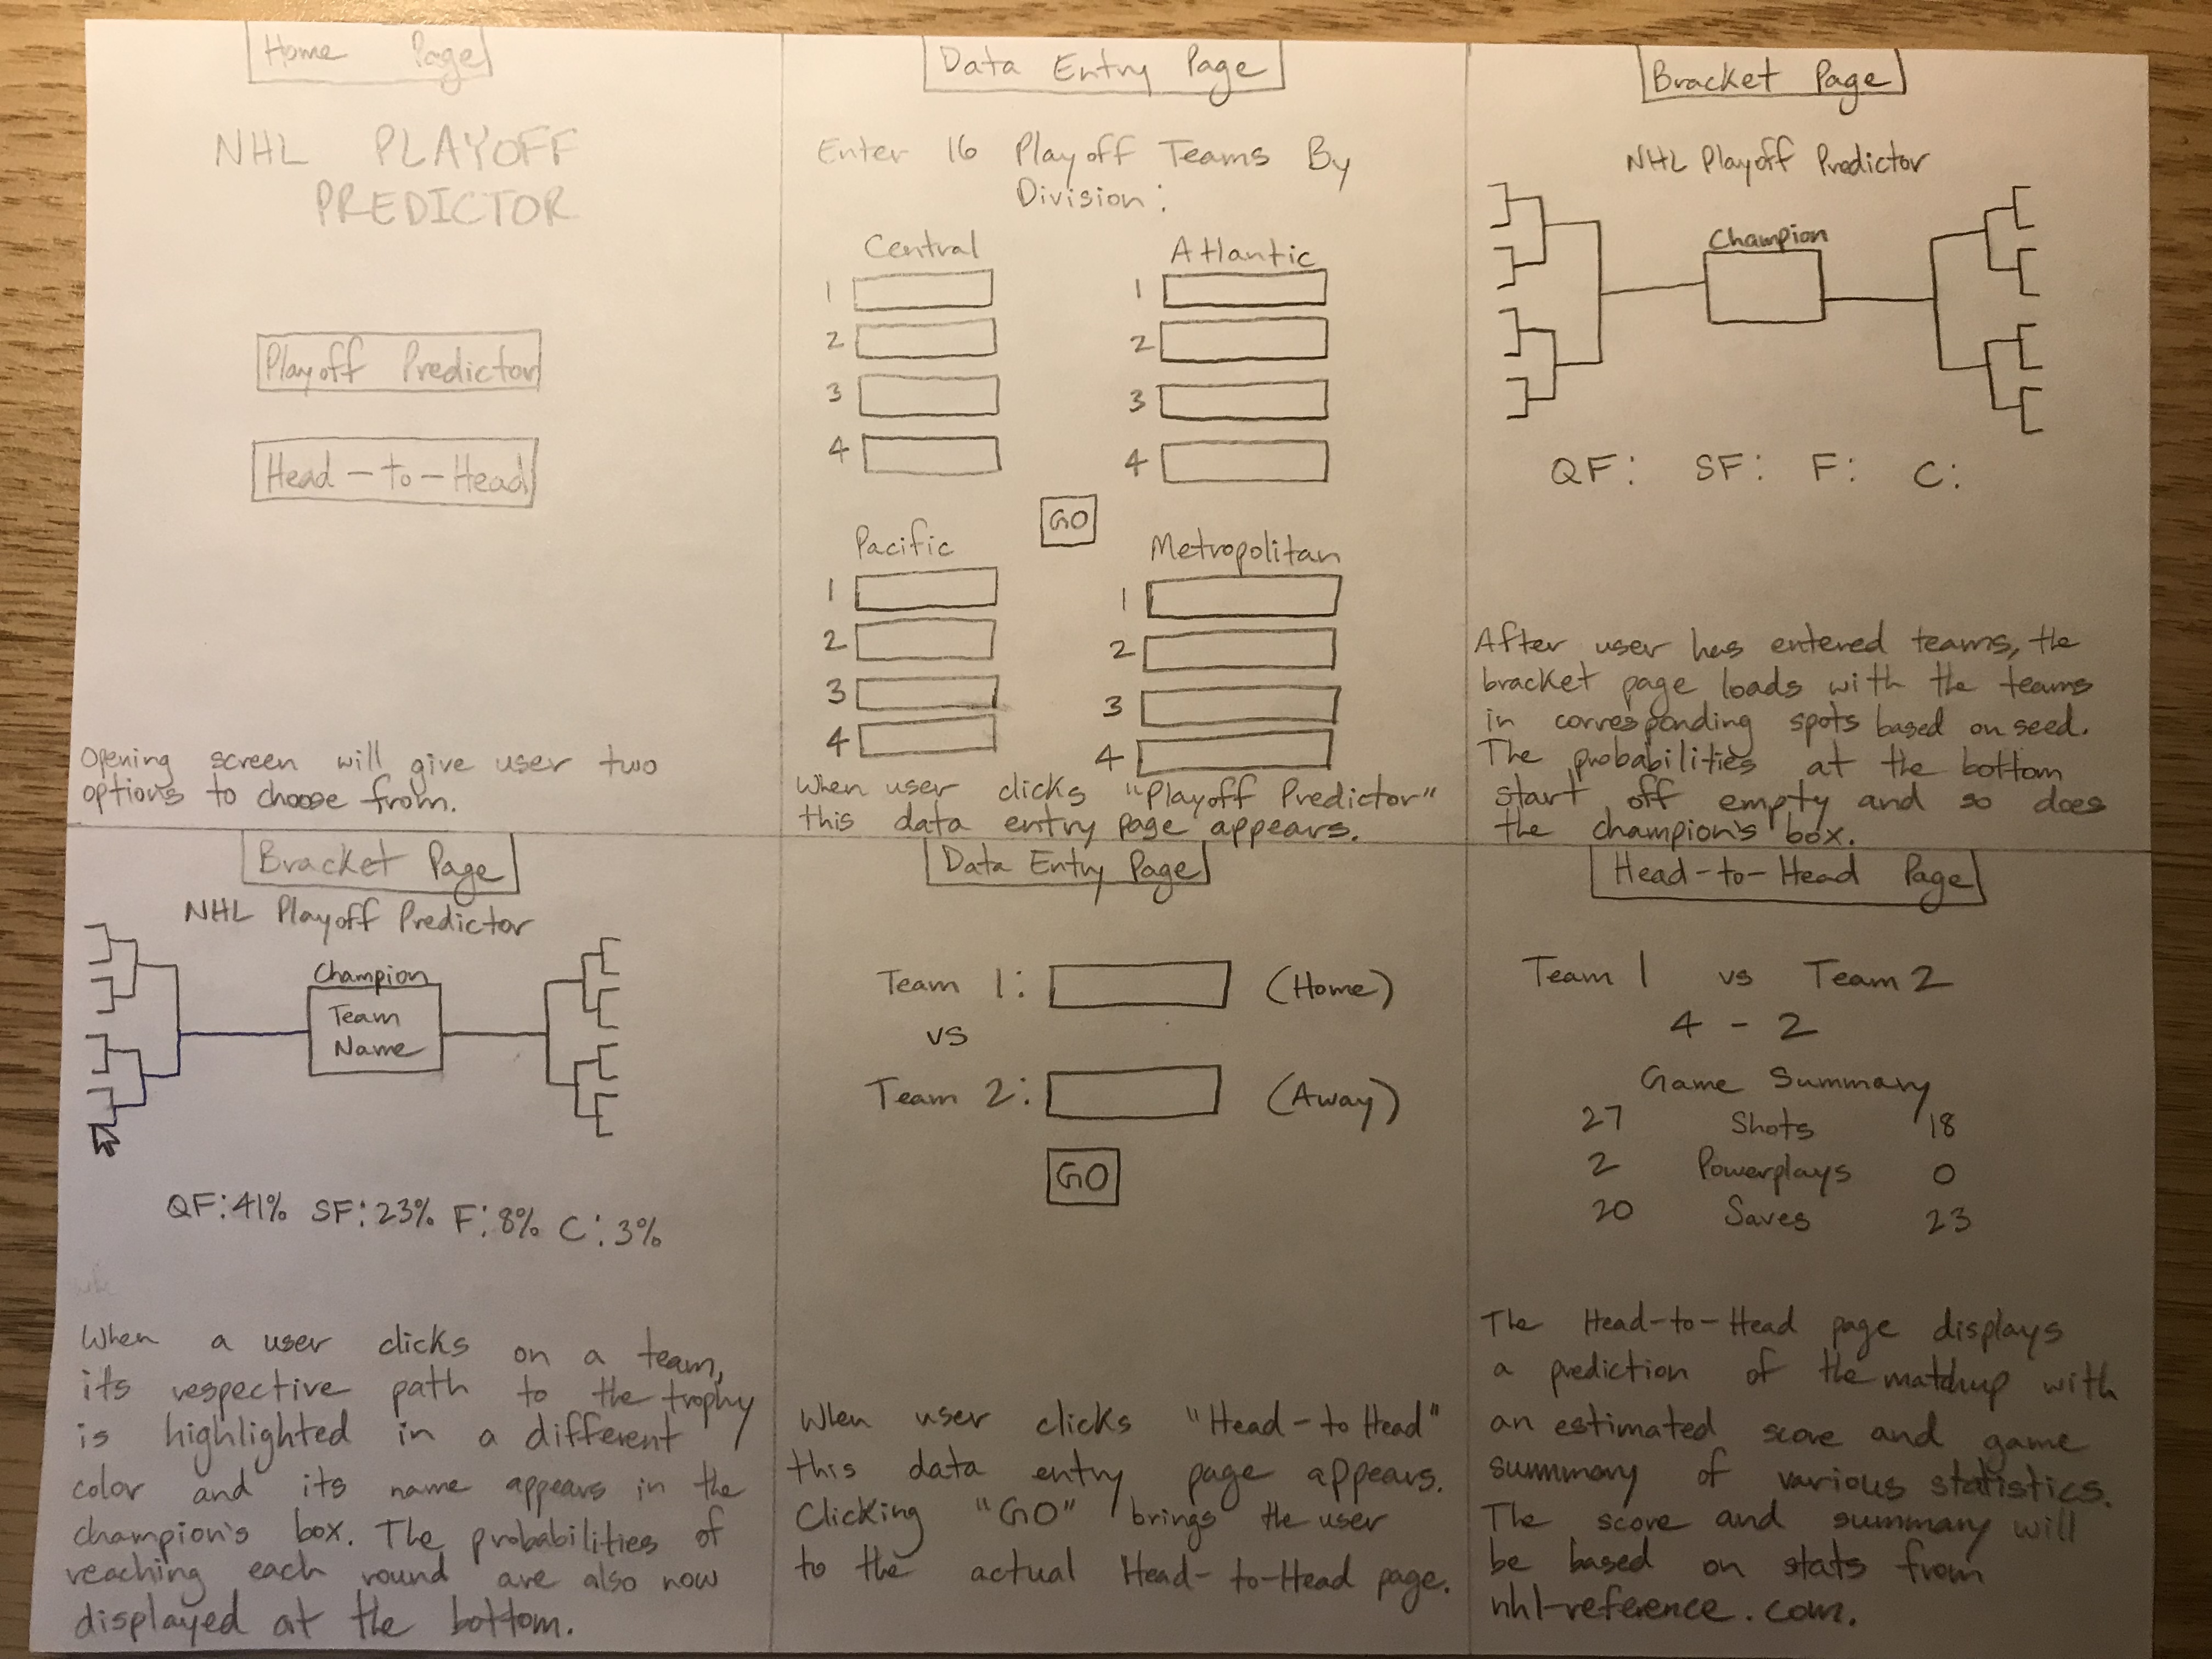 Home Page
NHL PLAYOFF
PREDICTOR
Playoff Predictor
Head-to-Head
Opening screen will give user two
options to choose from.
Data Entry Page
Enter 16 Playoff Teams By
Division:
Central Atlantic
1 1
2 2
3 3
4 4
GO
Pacific Metropolitan
1 1
2 2
3 3
4 4
When user clicks "Playoff Predictor"
this data entry page appears.
Bracket Page
NHL Playoff Predictor
Champion
QF: SF: F: C:
After user has entered teams, the
bracket page loads with the teams
in corresponding spots based on seed.
The probabilities at the bottom
start off empty and so does
the champion's box.
Bracket Page
NHL Playoff Predictor
Champion
Team
Name
QF:41% SF:23% F:8% C:3%
When a user clicks on a team,
its respective path to the trophy
is highlighted in a different
color and its name appears in the
champion's box. The probabilities of
reaching each round are also now
displayed at the bottom.
Data Entry Page
Team 1: (Home)
vs
Team 2: (Away)
GO
When user clicks "Head-to Head"
this data entry page appears.
Clicking "GO" brings the user
to the actual Head-to-Head page.
Head-to-Head Page
Team 1 vs Team 2
4 - 2
Game Summary
27 Shots 18
2 Powerplays 0
20 Saves 23
The Head-to-Head page displays
a prediction of the matchup with
an estimated score and game
summary of various statistics.
The score and summary will
be based on stats from
nhl-reference.com.